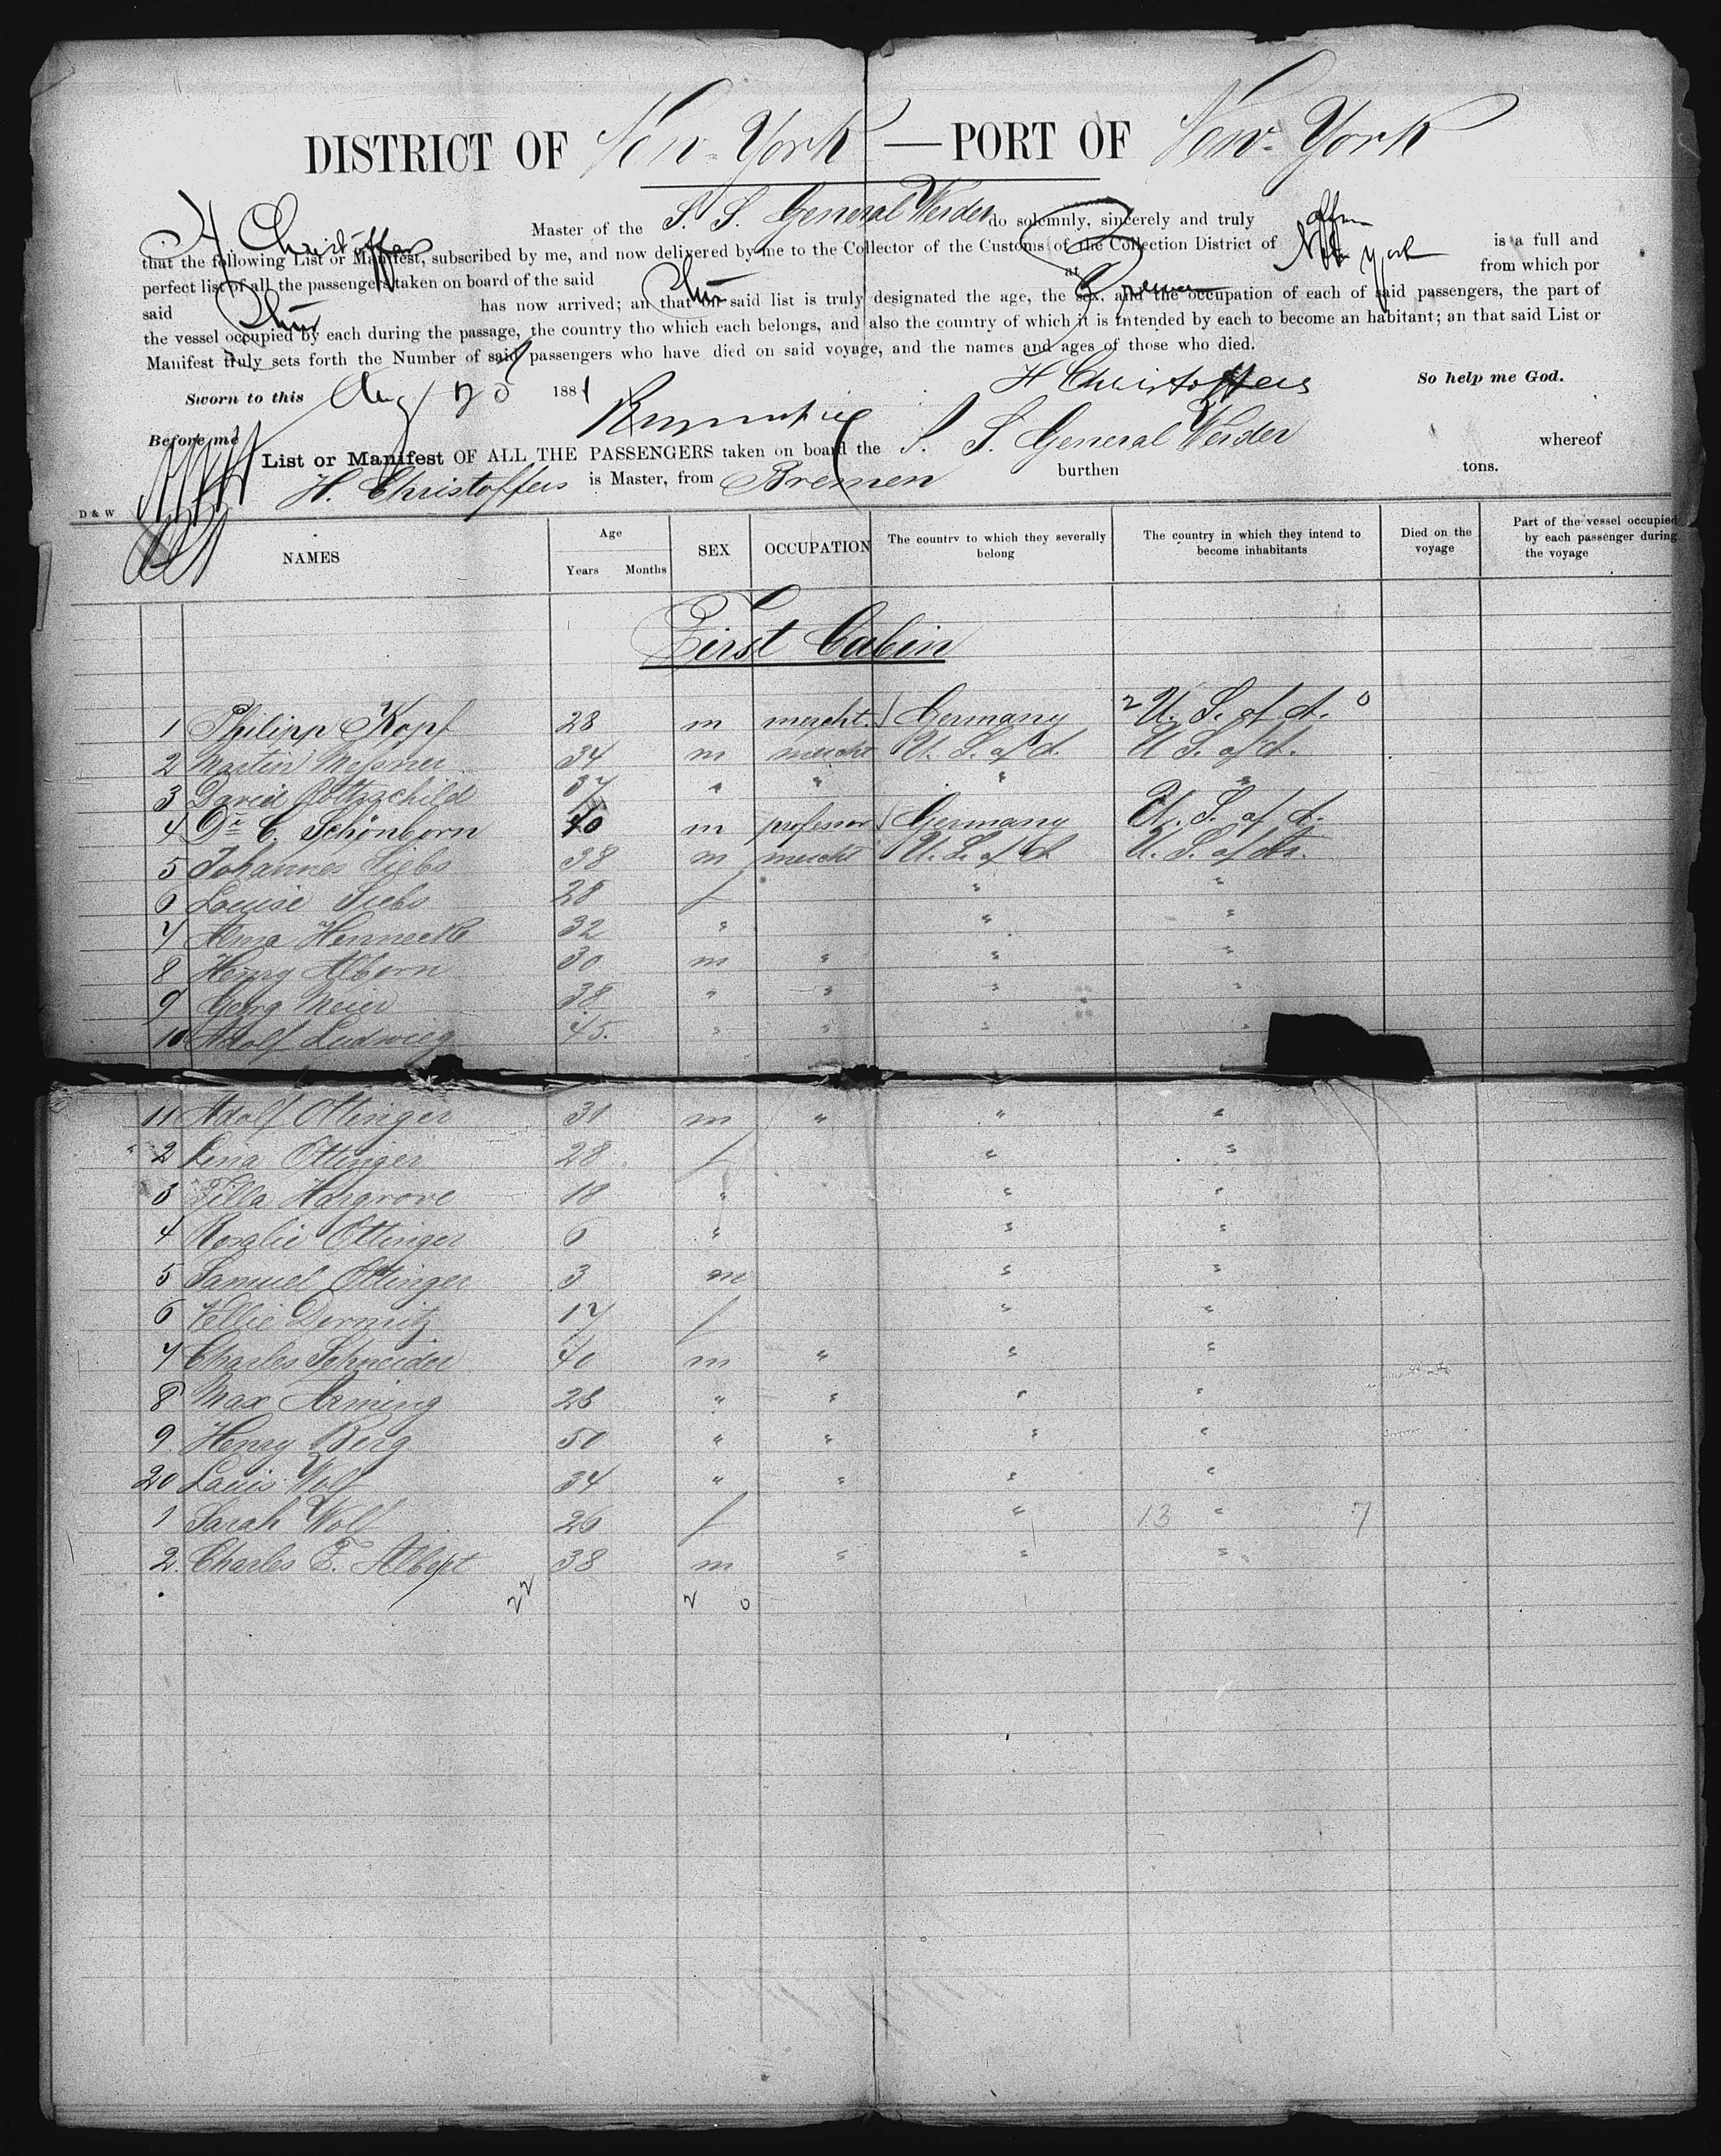 DISTRICT OF New-York — PORT OF New-York
H Christoffers Master of the S. S. General Werder do solemnly, sincerely and truly affirm
that the following List or Manifest, subscribed by me, and now delivered by me to the Collector of the Customs of the Collection District of New York is a full and
perfect list of all the passengers taken on board of the said Ship at Bremen from which por
said Ship has now arrived; an that on said list is truly designated the age, the sex, and the occupation of each of said passengers, the part of
the vessel occupied by each during the passage, the country tho which each belongs, and also the country of which it is intended by each to become an habitant; an that said List or
Manifest truly sets forth the Number of said passengers who have died on said voyage, and the names and ages of those who died.
Sworn to this Aug 23 1881 H Christoffers So help me God.
Before me
List or Manifest OF ALL THE PASSENGERS taken on board the S. S. General Werder whereof
H. Christoffers is Master, from Bremen burthen tons.
D & W
NAMES Age Years Months SEX OCCUPATION The country to which they severally belong The country in which they intend to become inhabitants Died on the voyage Part of the vessel occupied by each passenger during the voyage
First Cabin
1 Philipp Kopf 28 m mercht. Germany 2 U. S. of A. 0
2 Martin Messner 34 m mercht U. S. of A. U S. of A.
3 David Rothschild 37 " " " "
4 Dr. C. Schönborn 40 m professor Germany U. S. of A.
5 Johannes Siebs 38 m mercht U. S. of A U. S. of A.
6 Louise Siebs 28 f " "
7 Alma Hennecke 32 " " "
8 Henry Alborn 30 m " " "
9 Georg Meier 38 " " " "
10 Adolf Ludwieg 45. " " " "
11 Adolf Ottinger 31 m " " "
" 2 Lena Ottinger 28 f " "
3 Tilla Hargrove 18 " " "
4 Rosalie Ottinger 6 " " "
5 Samuel Ottinger 3 m " "
6 Nellie Dormitz 17 f " "
7 Charles Schneider 40 m " " "
8 Max Arming 28 " " " "
9 Henry Berg 50 " " " "
20 Louis Wolf 34 " " " "
1 Sarah Wolf 26 f " 13 " 7
2. Charles F. Albert 38 m " " "
22 2 0